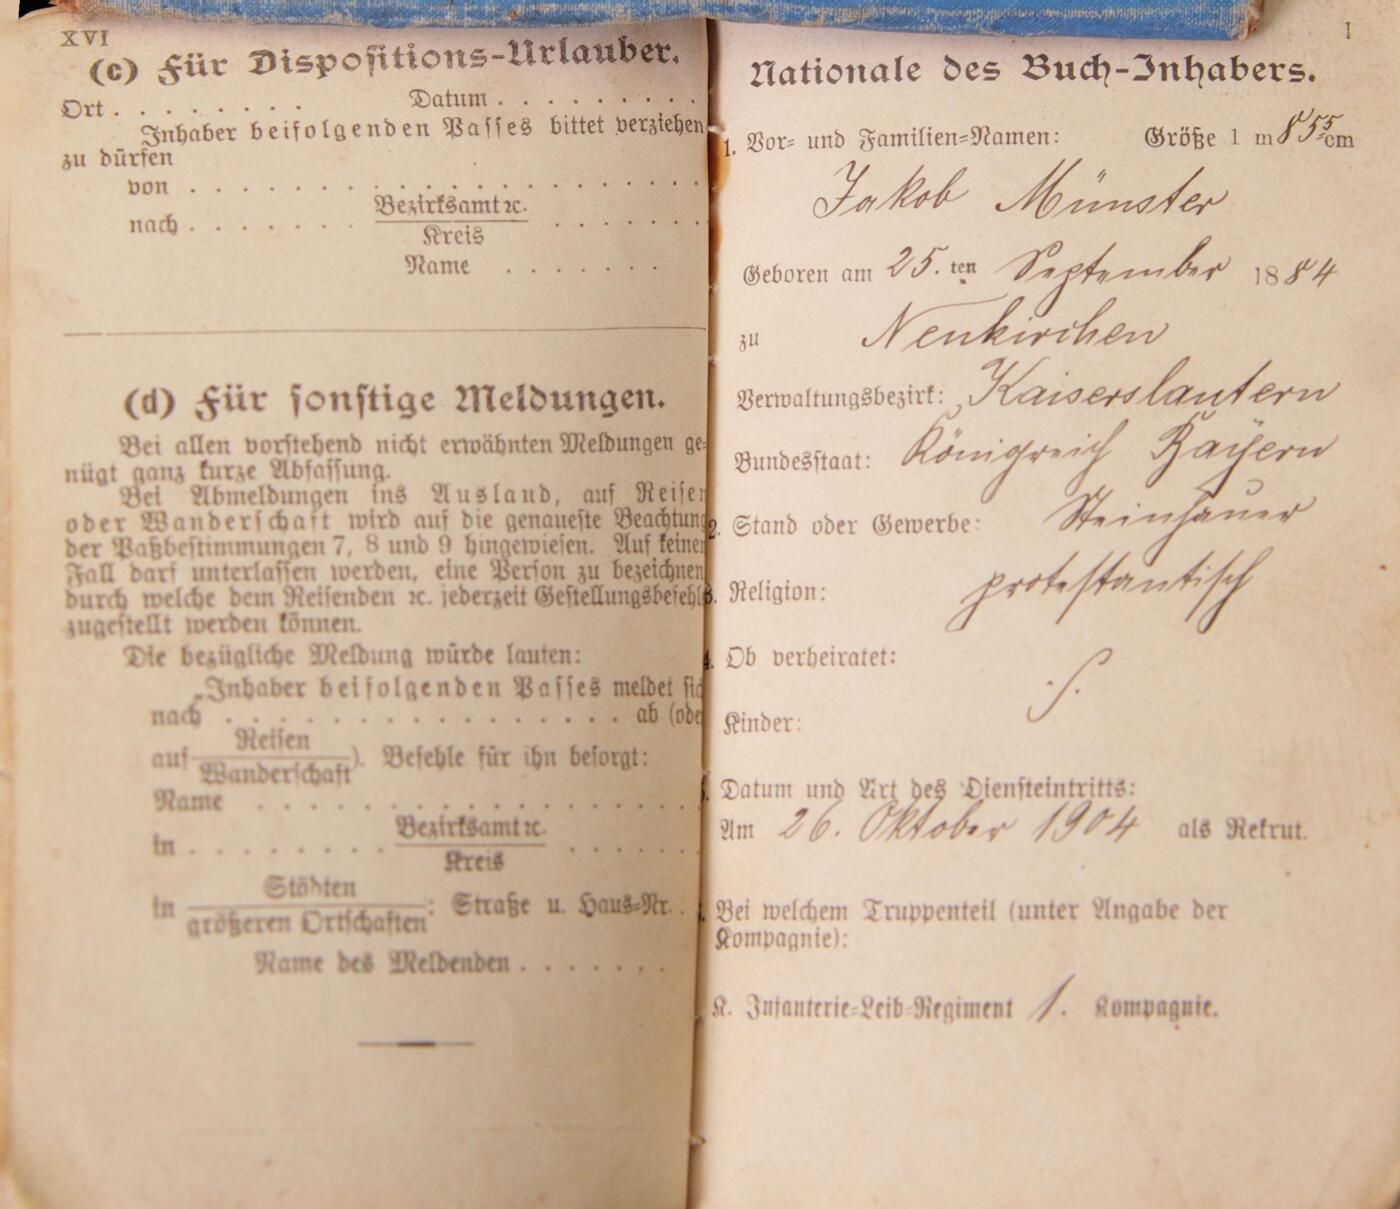 XVI
(c) Für Dispositions-Urlauber.
Ort . . . . . . . . Datum . . . . . . . . .
Inhaber beifolgenden Passes bittet verziehen
zu dürfen
von . . . . . . . . . . . . . . . . . . . .
nach . . . . . . . Bezirksamt ꝛc. . . . . . . .
Kreis
Name . . . . . . .
(d) Für sonstige Meldungen.
Bei allen vorstehend nicht erwähnten Meldungen ge-
nügt ganz kurze Abfassung.
Bei Abmeldungen ins Ausland, auf Reisen
oder Wanderschaft wird auf die genaueste Beachtung
der Paßbestimmungen 7, 8 und 9 hingewiesen. Auf keinen
Fall darf unterlassen werden, eine Person zu bezeichnen
durch welche dem Reisenden ꝛc. jederzeit Gestellungsbefehle
zugestellt werden können.
Die bezügliche Meldung würde lauten:
„Inhaber beifolgenden Passes meldet sich
nach . . . . . . . . . . . . . . . . ab (oder
Reisen
auf ). Befehle für ihn besorgt:
Wanderschaft
Name . . . . . . . . . . . . . . . . . .
in . . . . . . . . Bezirksamt ꝛc. . . . . . .
Kreis
Städten
in : Straße u. Haus-Nr. .
größeren Ortschaften
Name des Meldenden . . . . . . .
1
Nationale des Buch-Inhabers.
1. Vor- und Familien-Namen: Größe 1 m 85,5 cm
Jakob Münster
Geboren am 25. ten September 1884
zu Neukirchen
Verwaltungsbezirk: Kaiserslautern
Bundesstaat: Königreich Bayern
2. Stand oder Gewerbe: Steinhauer
3. Religion: protestantisch
4. Ob verheiratet:
Kinder:
5. Datum und Art des Diensteintritts:
Am 26. Oktober 1904 als Rekrut.
Bei welchem Truppenteil (unter Angabe der
Kompagnie):
K. Infanterie-Leib-Regiment 1. Kompagnie.